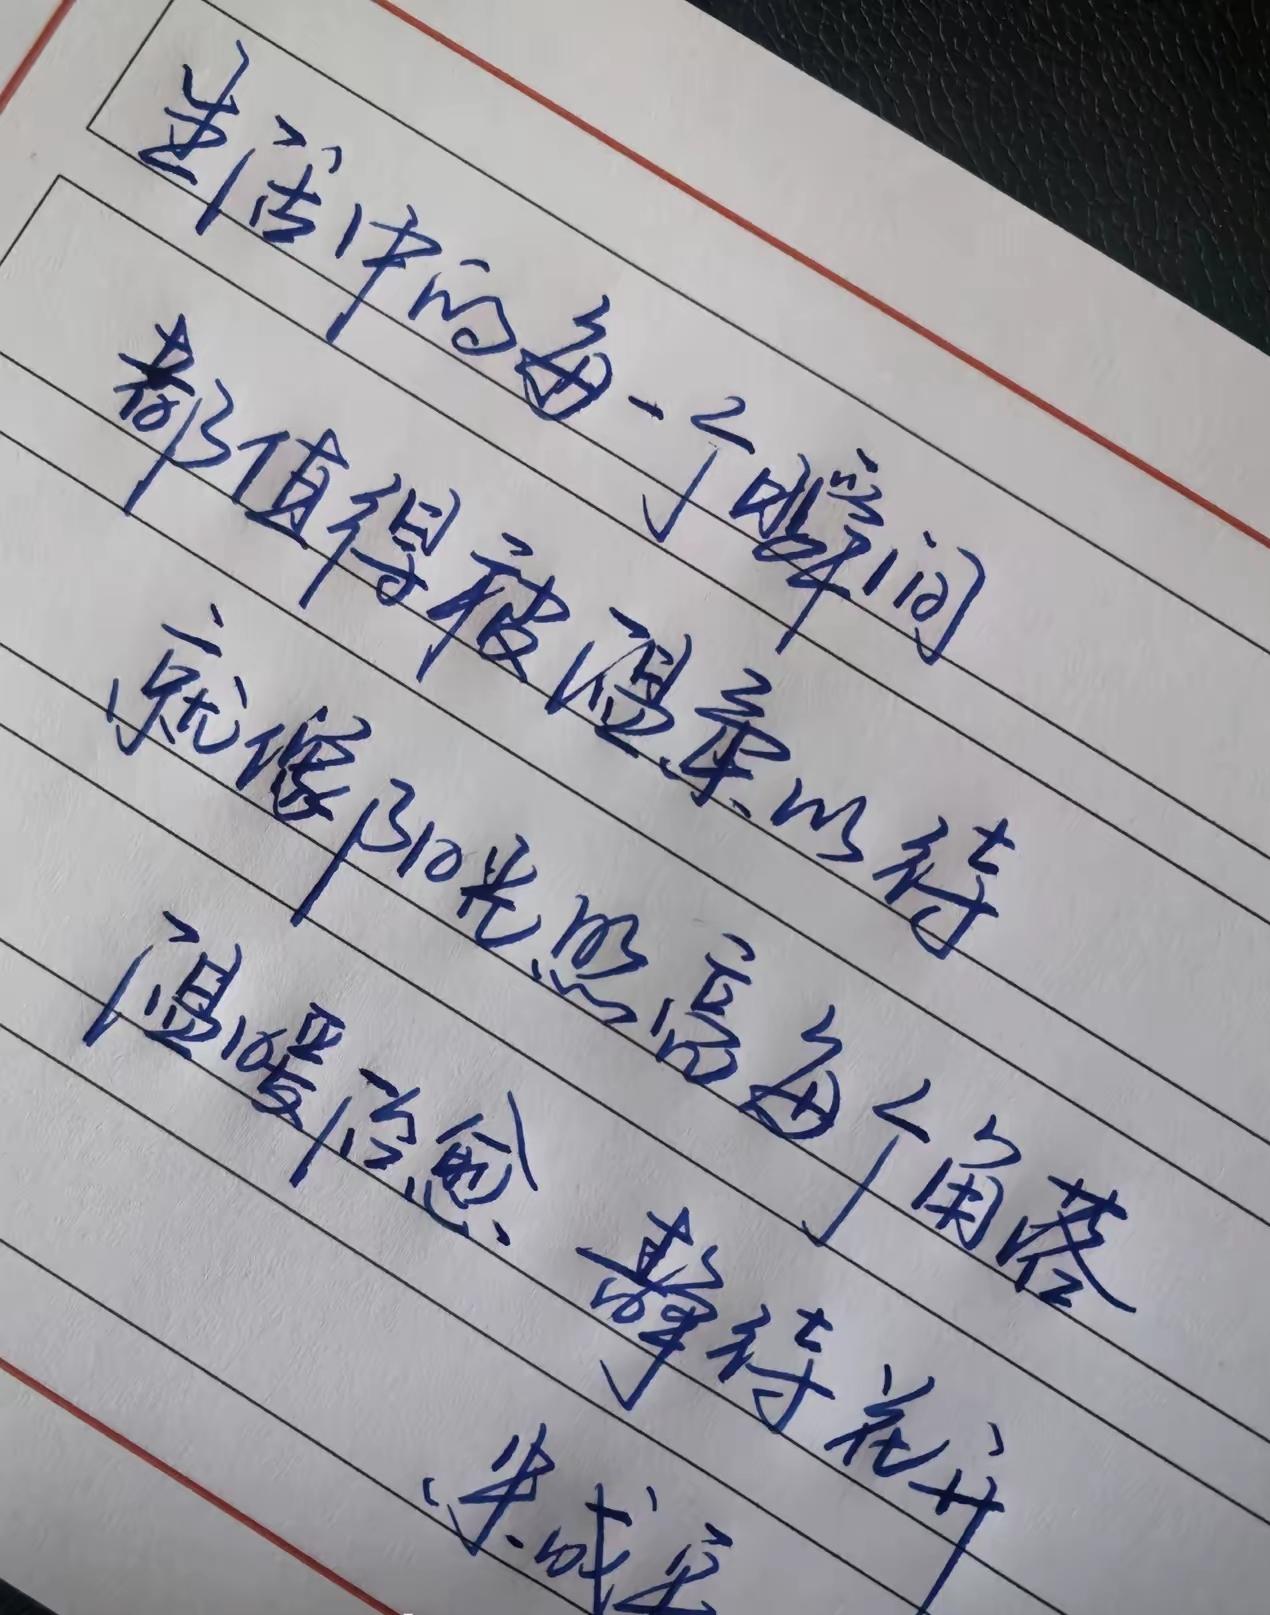 生活中的每一个瞬间
都值得被温柔以待
就像阳光照亮每个角落
温暖治愈、静待花开
朱成